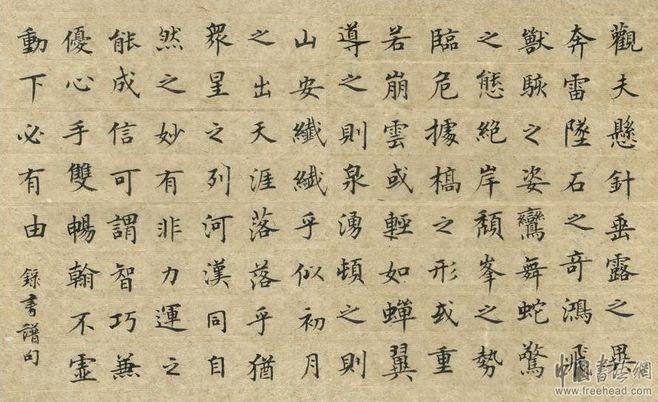 觀夫懸針垂露之異
奔雷墜石之奇鴻飛
獸駭之姿鸞舞蛇驚
之態絕岸頹峯之勢
臨危據槁之形或重
若崩雲或輕如蟬翼
導之則泉湧頓之則
山安纖纖乎似初月
之出天涯落落乎猶
眾星之列河漢同自
然之妙有非力運之
能成信可謂智巧兼
優心手雙暢翰不虛
動下必有由
錄書譜句
中國書法網
www.freehead.com